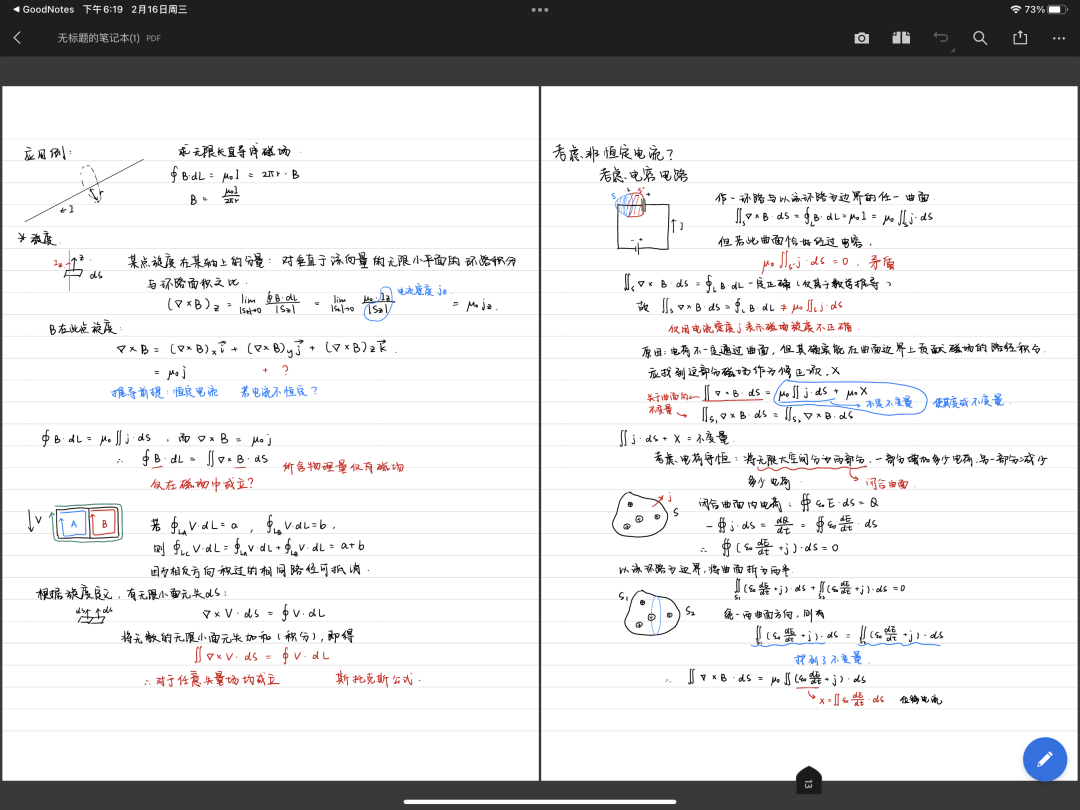 ◀ GoodNotes 下午6:19 2月16日周三
73%
无标题的笔记本(1) PDF
应用例:
求无限长直导体磁场.
∮B·dL = μ₀I = 2πr·B
B = μ₀I/2πr
r
←I
* 旋度.
Iz z
ds
某点旋度在某轴上的分量: 对垂直于该向量的无限小平面的环路积分
与环路面积之比.
(▽×B)z = lim |Sz|→0 ∮B·dL/|Sz| = lim |Sz|→0 μ₀·Iz/|Sz| = μ₀jz.
电流密度 jz.
B在此点旋度:
▽×B = (▽×B)x i + (▽×B)y j + (▽×B)z k.
= μ₀j + ?
推导前提: 恒定电流 若电流不恒定?
∮B·dL = μ₀∬j·ds, 而 ▽×B = μ₀j
∴ ∮B·dL = ∬▽×B·ds
所含物理量仅有磁场
仅在磁场中成立?
V A B
若 ∮LA V·dL = a, ∮LB V·dL = b,
则 ∮LC V·dL = ∮LA V·dL + ∮LB V·dL = a+b
因为相反方向积过的相同路径可抵消.
根据旋度定义, 有无限小面元矢ds:
ds ds
▽×V·ds = ∮V·dL
将无数的无限小面元矢加和(积分), 即得
∬▽×V·ds = ∮V·dL
∴ 对于任意矢量场均成立 斯托克斯公式.
考虑非恒定电流?
考虑电容电路
S L S' +
I
- +
作一环路与以该环路为边界的任一曲面
∬S ▽×B·ds = ∮L B·dL = μ₀I = μ₀∬S j·ds
但若此曲面恰好经过电容,
μ₀∬S' j·ds = 0, 矛盾
∬S ▽×B·ds = ∮L B·dL 一定正确(仅基于数学推导)
故 ∬S ▽×B·ds = ∮L B·dL ≠ μ₀∬S j·ds
仅用电流密度j表示磁场旋度不正确.
原因: 电荷不一定通过曲面, 但其确实能在曲面边界上贡献磁场的路径积分.
应找到这部分磁场作为修正项, X
关于曲面的 不变量
∬▽×B·ds = μ₀∬j·ds + μ₀X
→ 不是不变量 使其变成不变量.
∬S₁ ▽×B·ds = ∬S₂ ▽×B·ds
∬j·ds + X = 不变量.
考虑电荷守恒: 将无限大空间分为两部分, 一部分增加多少电荷, 另一部分减少
多少电荷. 闭合曲面.
j S
闭合曲面内电荷: ∯ε₀E·ds = Q
-∯j·ds = dQ/dt = ∯ε₀ dE/dt·ds
∴ ∯(ε₀ dE/dt + j)·ds = 0
以该环路为边界, 将曲面拆为两半.
∬S₁(ε₀ dE/dt + j)·ds + ∬S₂(ε₀ dE/dt + j)·ds = 0
S₁ S₂
统一两曲面方向, 则有
∬S₁(ε₀ dE/dt + j)·ds = ∬S₂(ε₀ dE/dt + j)·ds
找到了不变量.
∴ ∬▽×B·ds = μ₀∬(ε₀ dE/dt + j)·ds
X = ∬ε₀ dE/dt·ds 位移电流
13